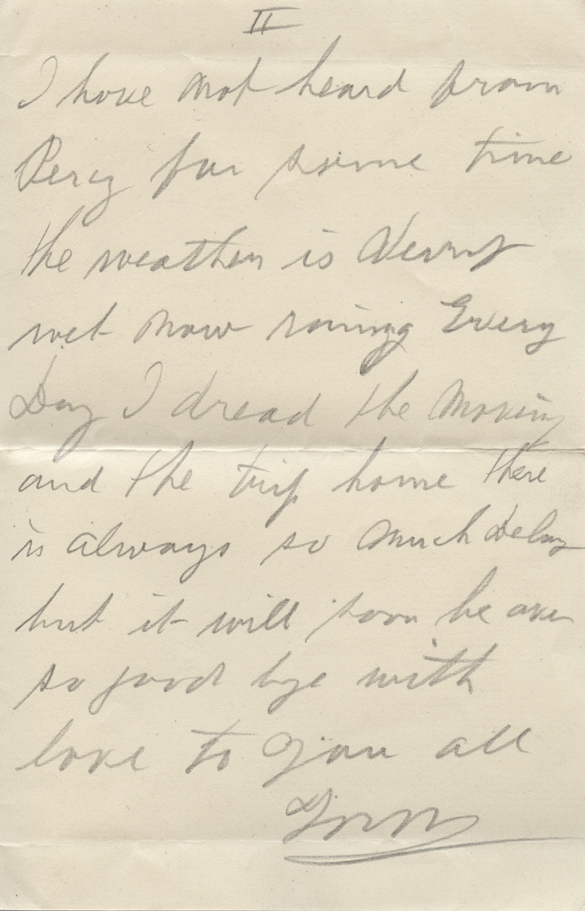 II
I have not heard from
Percy for some time
the weather is
wet now raining Every
Day I dread the moving
and the trip home there
is always so much Delay
but it will soon be over
so good bye with
love to you all